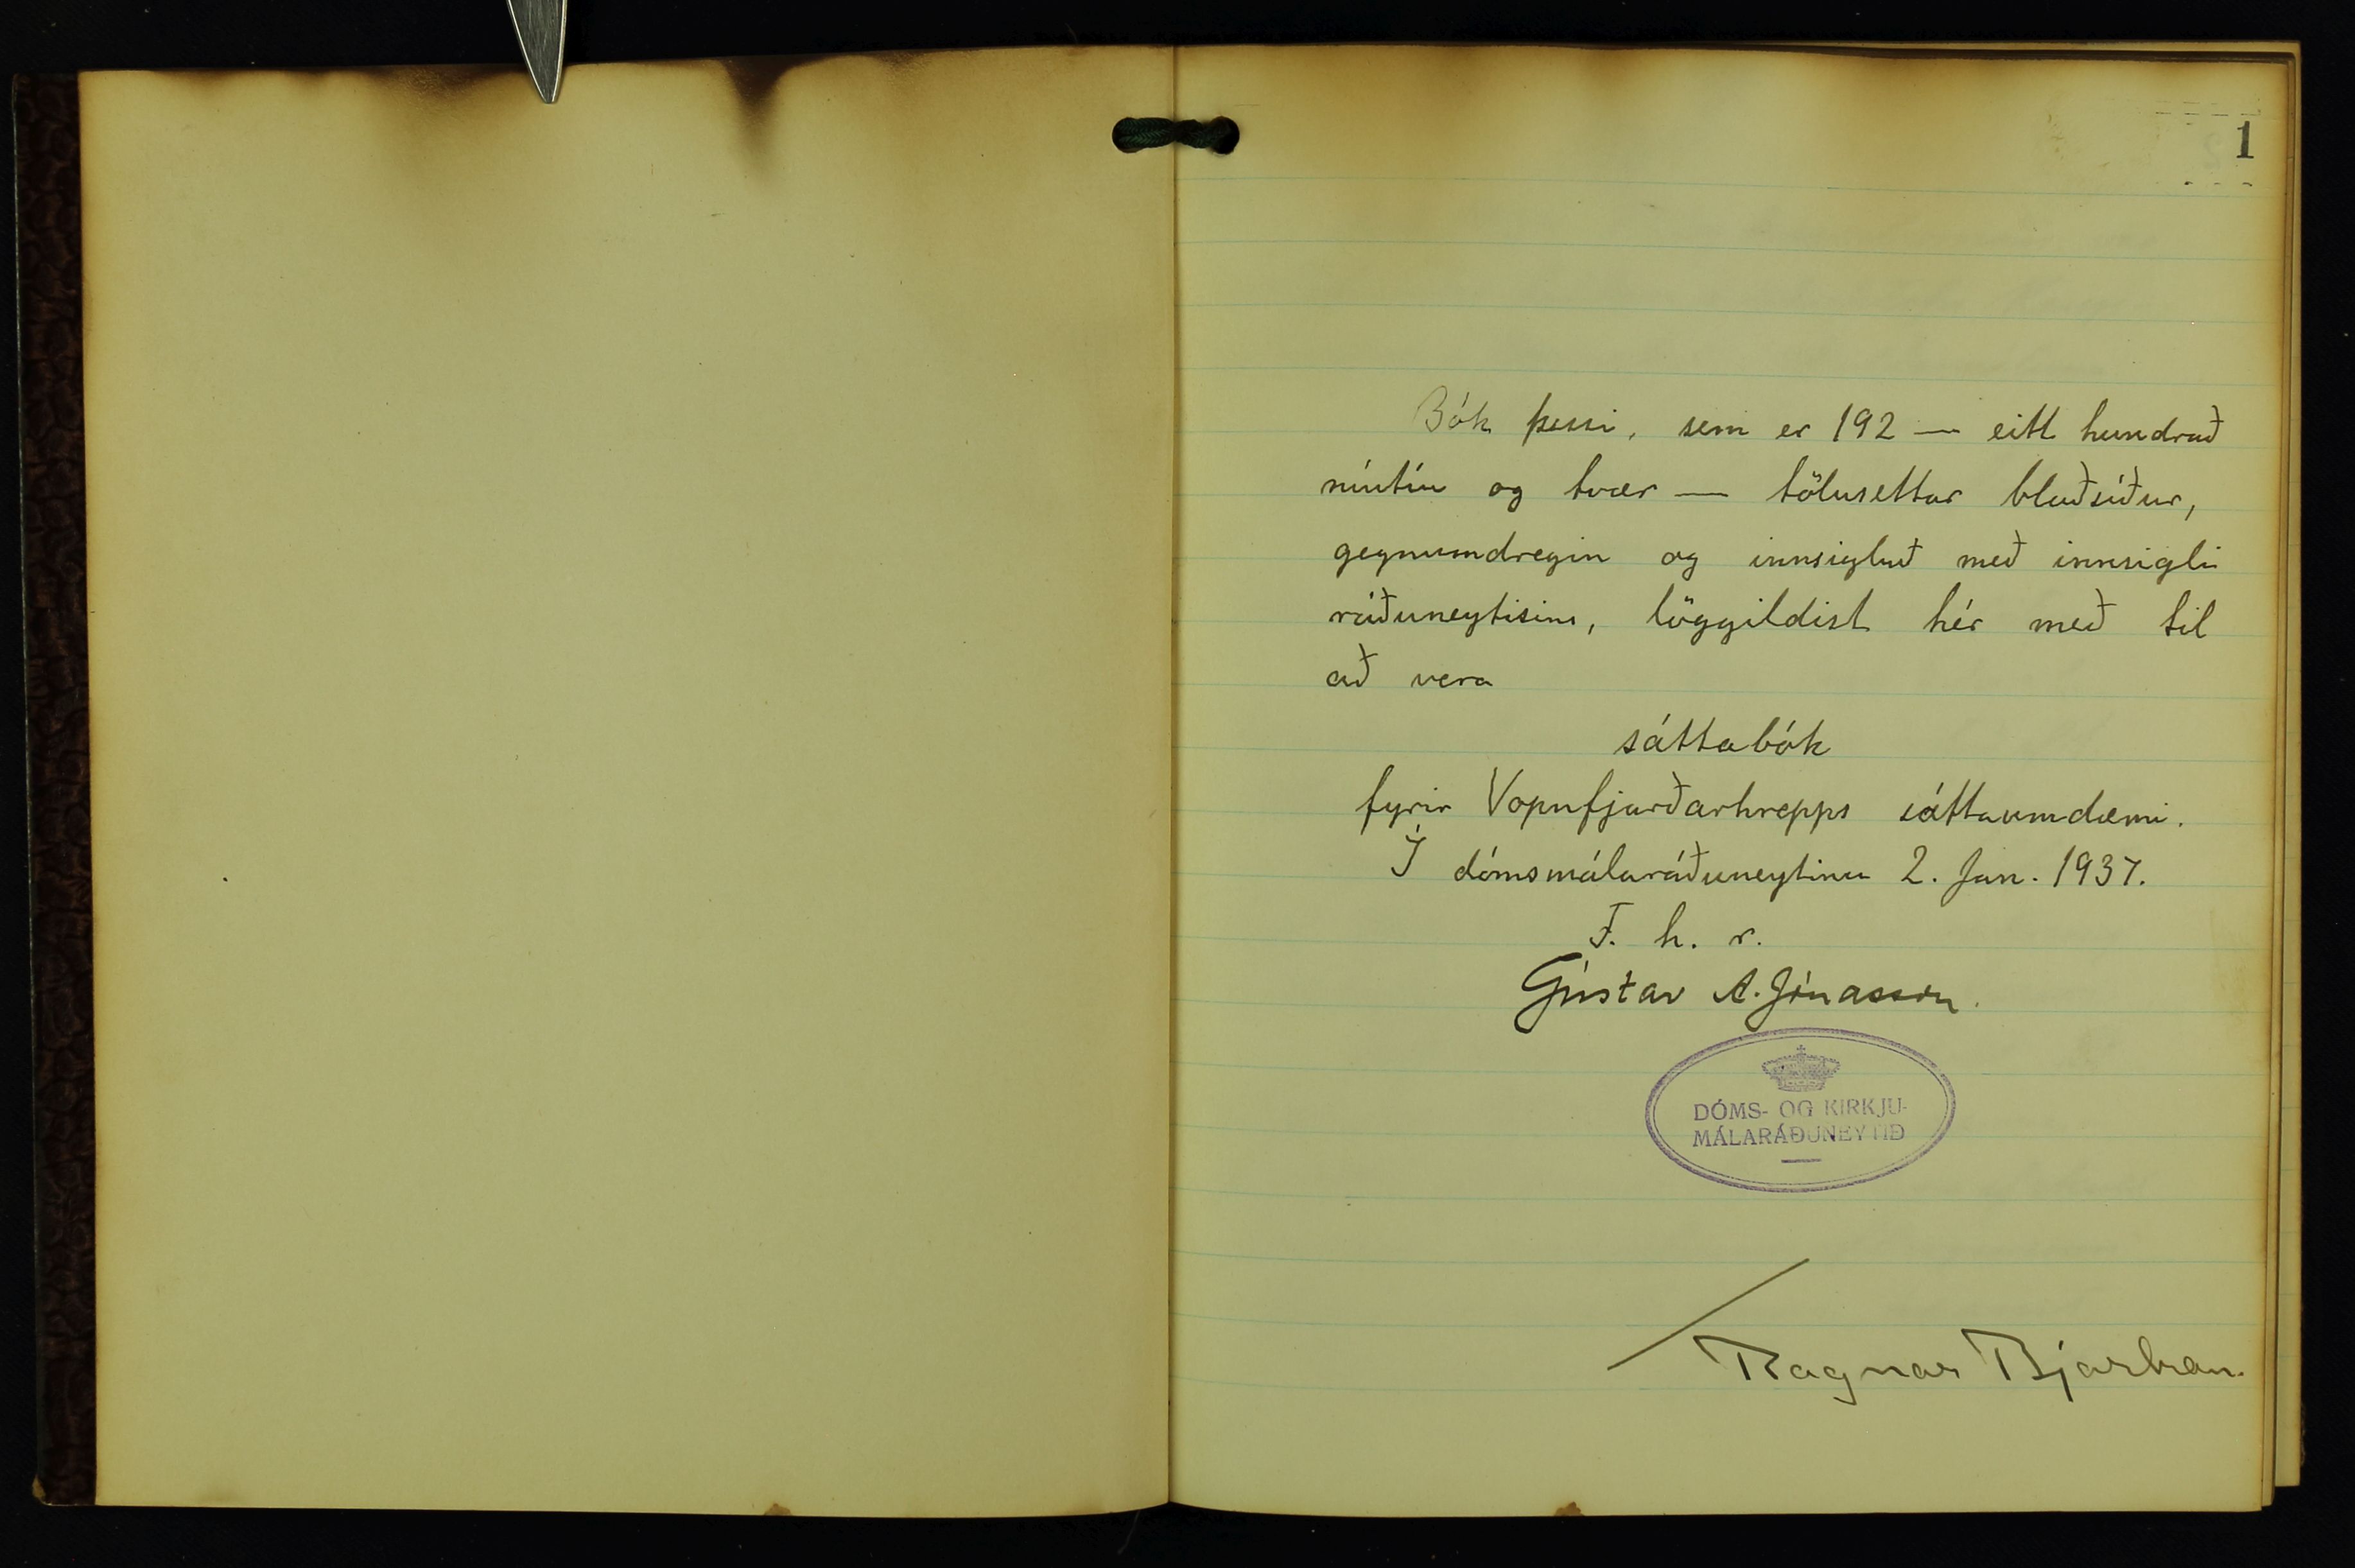 1
Bók þessi, sem er 192 — eitt hundrað
níutíu og tvær — tölusettar blaðsíður,
gegnumdregin og innsigluð með innsigli
ráðuneytisins, löggildist hér með til
að vera
sáttabók
fyrir Vopnfjarðarhrepps sáttaumdæmi.
Í dómsmálaráðuneytinu 2. Jan. 1937.
F. h. r.
Gústav A. Jónasson.
DÓMS- OG KIRKJU-
MÁLARÁÐUNEYTIÐ
Ragnar Bjarkan.